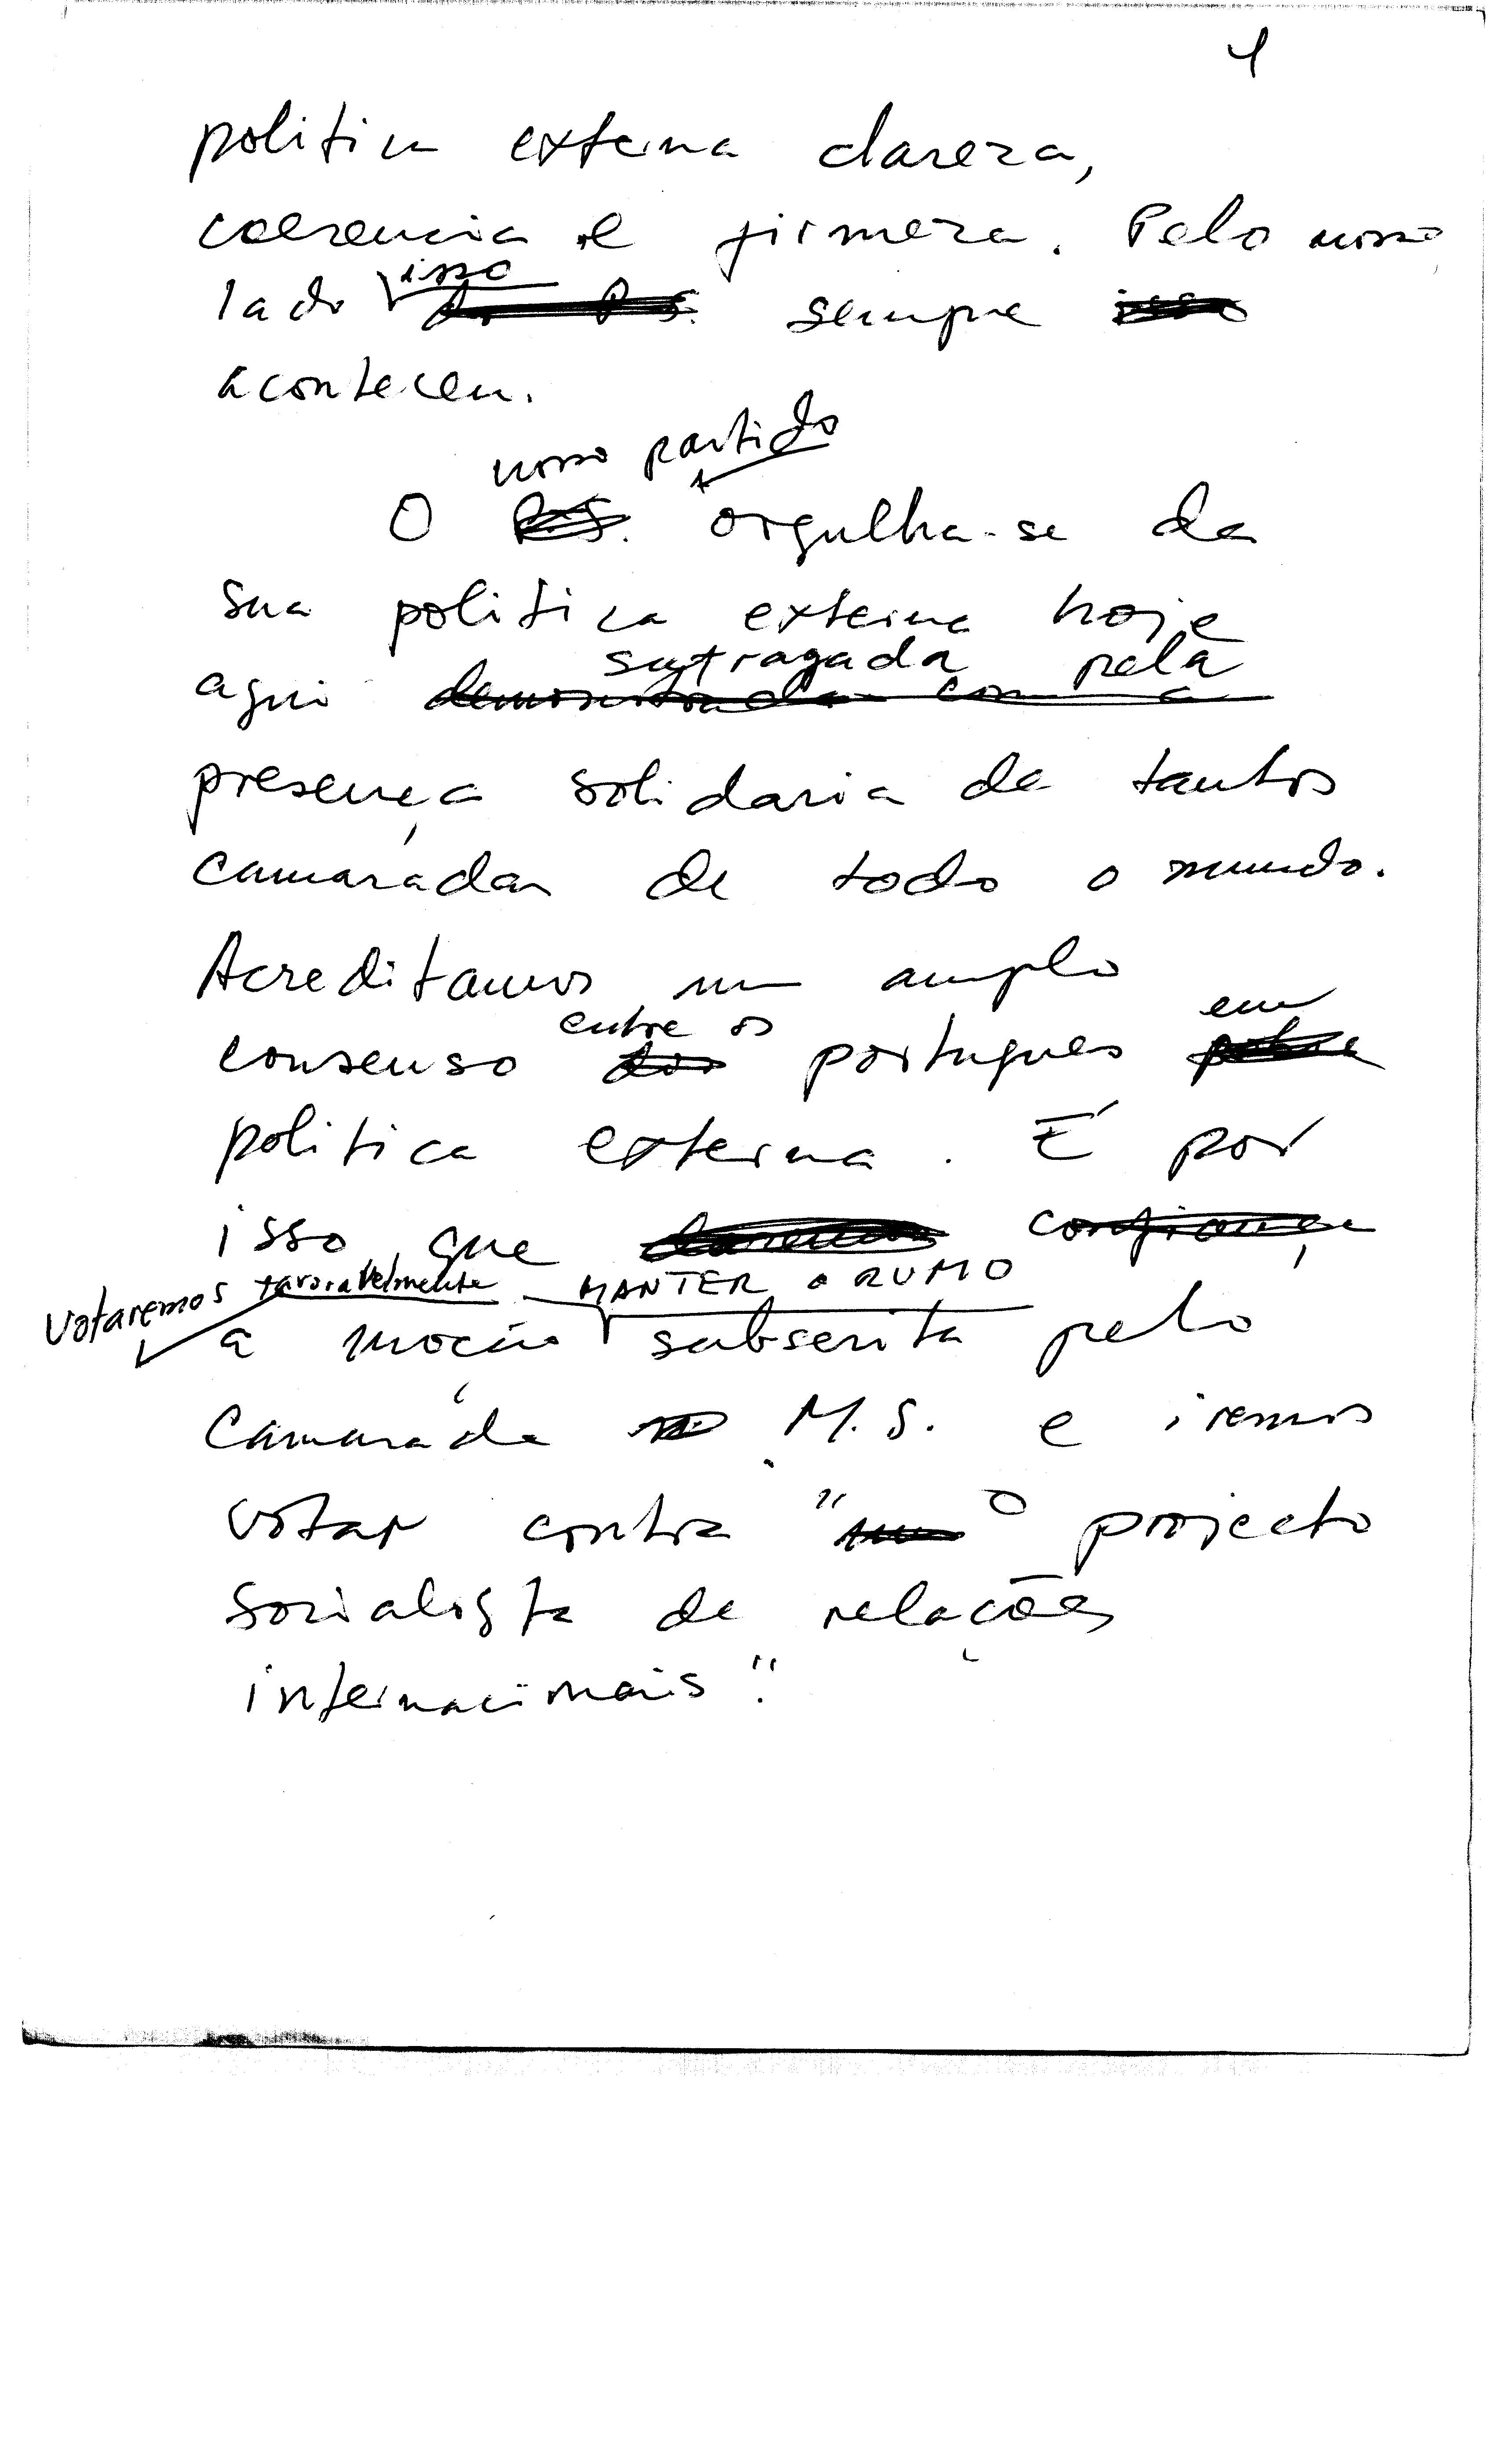 4
politica externa clareza,
coerencia e firmeza. Pelo nosso
isso
lado do P.S. sempre isso
aconteceu.
nosso partido
O P.S. orgulha-se da
sua politica externa hoje
sufragada pela
aqui demonstrada com a
presença solidaria de tantos
camaradas de todo o mundo.
Acreditamos num amplo
entre os em
consenso dos portugues sobre
politica externa. É por
isso que daremos confiança
votaremos favoravelmente MANTER o RUMO
a moção subscrita pelo
camarada M.S. e iremos
votar contra "um O projecto
socialista de relações
internacionais".